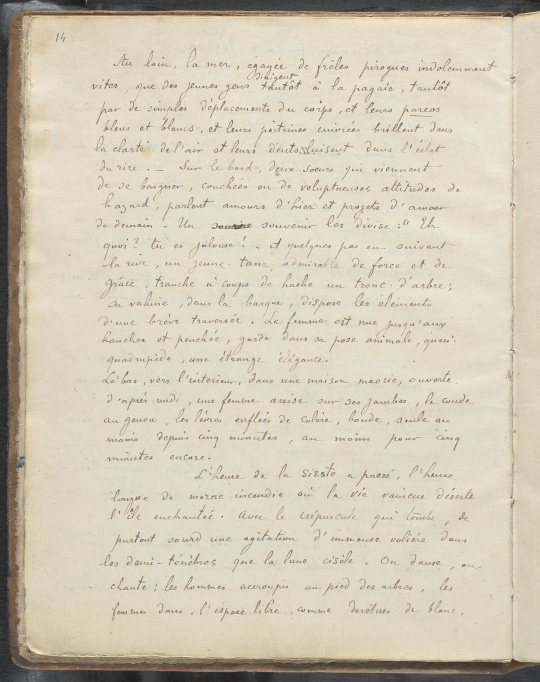 14
Au loin, la mer, egayée de frêles pirogues indolemment
dirigent
vites, que des jeunes gens tantôt à la pagaie, tantôt
par de simples déplacements du corps, et leurs pareos
bleus et blancs, et leurs poitrines cuivrées brillent dans
la clarté de l'air et leurs dents luisent dans l'éclat
du rire. — Sur le bord, deux soeurs qui viennent
de se baigner, couchées en de voluptueuses attitudes de
hazard, parlent amours d'hier et projets d'amour
de demain. Un souvenir les divise : "Eh
quoi? tu es jalouse! - A quelques pas en suivant
la rive, un jeune tane, admirable de force et de
grâce, tranche à coups de hache un tronc d'arbre;
sa vahine, dans la barque, dispose les éléments
d'une brève traversée. La femme est nue jusqu'aux
hanches et penchée, garde dans sa pose animale, quasi
quadrupède, une étrange élégance.
Là bas, vers l'interieur, dans une maison maorie, ouverte
d'après midi, une femme assise sur ses jambes, le coude
au genou, les lèvres enflées de colère, boude, seule au
moins depuis cinq minutes, au moins pour cinq
minutes encore.
L'heure de la sieste a passé, l'heure
longue de morne incendie où la vie vaincue déserte
l'île enchantée. Avec le crépuscule qui tombe, de
partout sourd une agitation d'immense volière dans
les demi-ténèbres que la lune cisèle. On danse, on
chante : les hommes accroupis au pied des arbres, les
femmes dans l'espace libre comme devetues de blanc.